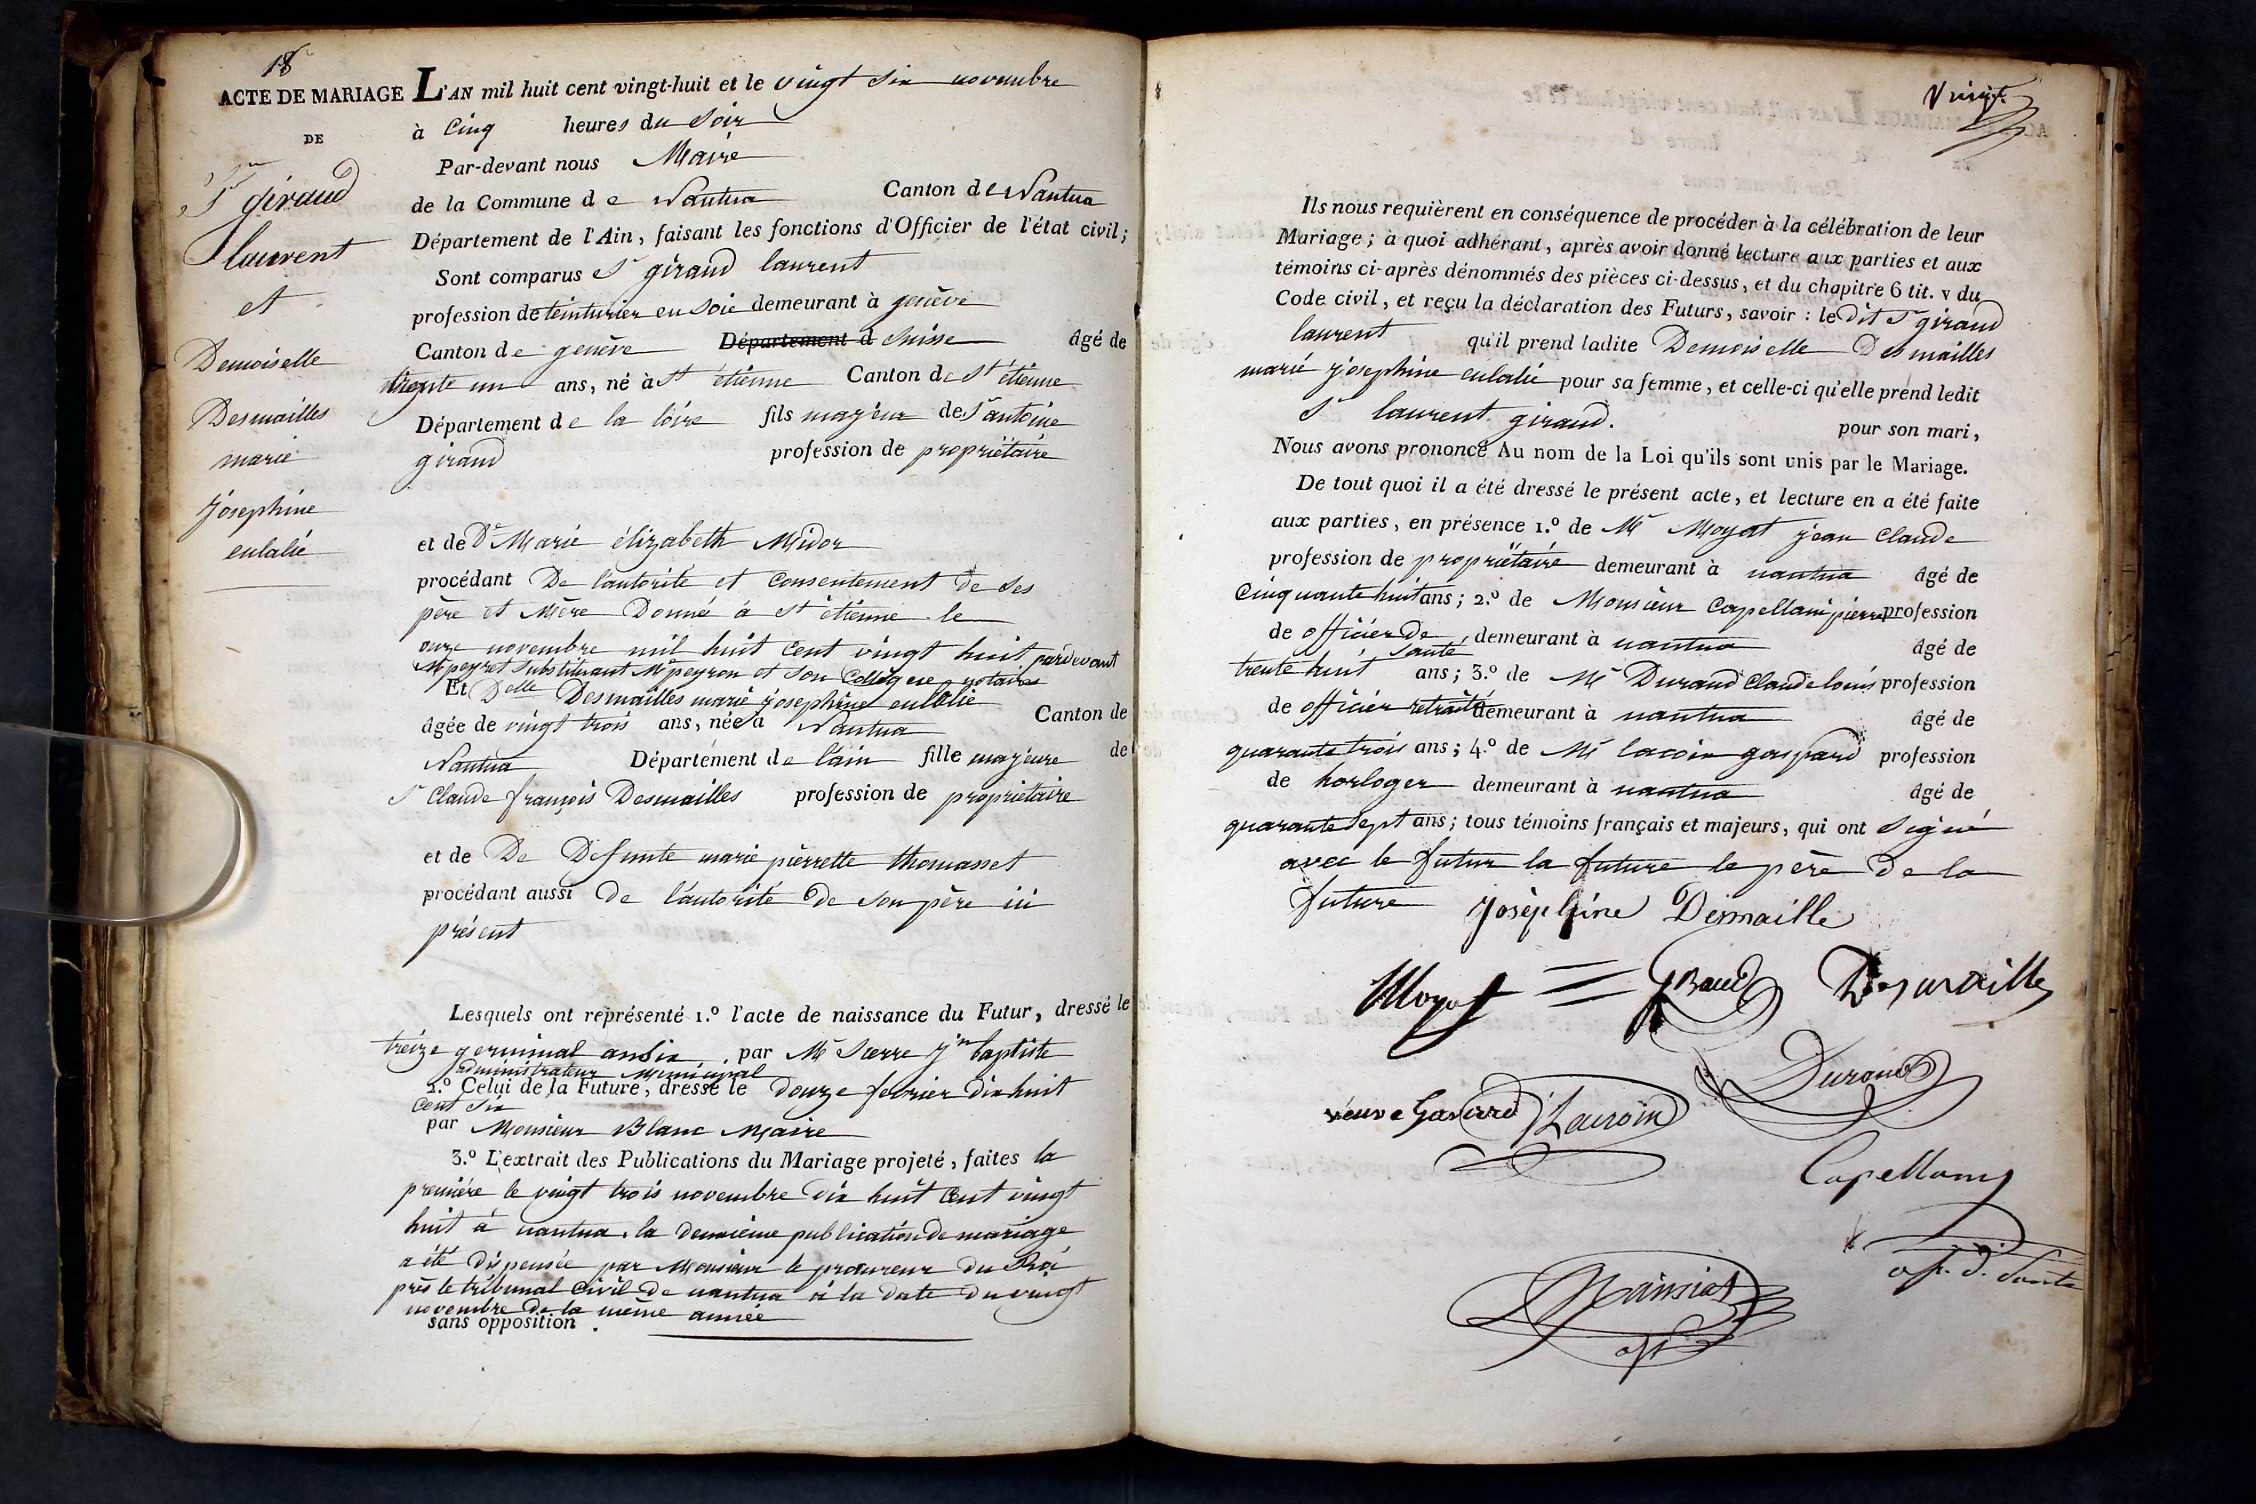 18
ACTE DE MARIAGE
DE
Sr giraud
laurent
et
Demoiselle
Desmailles
marie
josephine
eulalie
L'AN mil huit cent vingt-huit et le vingt six novembre
à cinq heures du soir
Par-devant nous Maire
de la Commune de Nantua Canton de Nantua
Département de l'Ain, faisant les fonctions d'Officier de l'état civil;
Sont comparus Sr giraud laurent
profession de teinturier en soie demeurant à genève
Canton de genève Département d suisse âgé de
trente un ans, né à St étienne Canton de St étienne
Département de la loire fils majeur de Sr antoine
giraud profession de propriétaire
et de De Marie élizabeth Midor
procédant De l'autorité et Consentement de ses
père et Mère Donné à St étienne le
onze novembre mil huit cent vingt huit pardevant
Me peyret substituant Me peyron et son Collègue notaires
Et Delle Desmailles marie josephine eulalie
âgée de vingt trois ans, née à Nantua Canton de
Nantua Département de l'ain fille majeure de
Sr Claude françois Desmailles profession de propriétaire
et de De Defunte marie pierrette thomasset
procédant aussi de l'autorité de son père ici
présent
Lesquels ont représenté 1.º l'acte de naissance du Futur, dressé le
treize germinal an six par Mr Pierre Jn baptiste
administrateur Municipal
2.º Celui de la Future, dressé le douze fevrier dix huit
cent six
par Monsieur Blanc Maire
3.º L'extrait des Publications du Mariage projeté, faites la
première le vingt trois novembre dix huit cent vingt
huit à nantua. la deuxième publication de mariage
a été dispensée par Monsieur le procureur du Roi
près le tribunal Civil de nantua à la date du vingt
novembre de la même année
sans opposition.
Vingt
Ils nous requièrent en conséquence de procéder à la célébration de leur
Mariage; à quoi adhérant, après avoir donné lecture aux parties et aux
témoins ci-après dénommés des pièces ci-dessus, et du chapitre 6 tit. v du
Code civil, et reçu la déclaration des Futurs, savoir: le dit Sr giraud
laurent qu'il prend ladite Demoiselle Desmailles
marie josephine eulalie pour sa femme, et celle-ci qu'elle prend ledit
Sr laurent giraud. pour son mari,
Nous avons prononcé Au nom de la Loi qu'ils sont unis par le Mariage.
De tout quoi il a été dressé le présent acte, et lecture en a été faite
aux parties, en présence 1.º de Mr Moyat jean Claude
profession de propriétaire demeurant à nantua âgé de
cinquante huit ans; 2.º de Monsieur Capellani pierre profession
de officier de santé demeurant à nantua âgé de
trente huit ans; 3.º de Mr Durand Claude louis profession
de officier retraité demeurant à nantua âgé de
quarante trois ans; 4.º de Mr lacroix gaspard profession
de horloger demeurant à nantua âgé de
quarante sept ans; tous témoins français et majeurs, qui ont signé
avec le futur la future le père de la
future Josèphine Desmaille
Moyat Giraud Desmailles
Durand
veuve Lacroix
Capellany
of. d. Santé